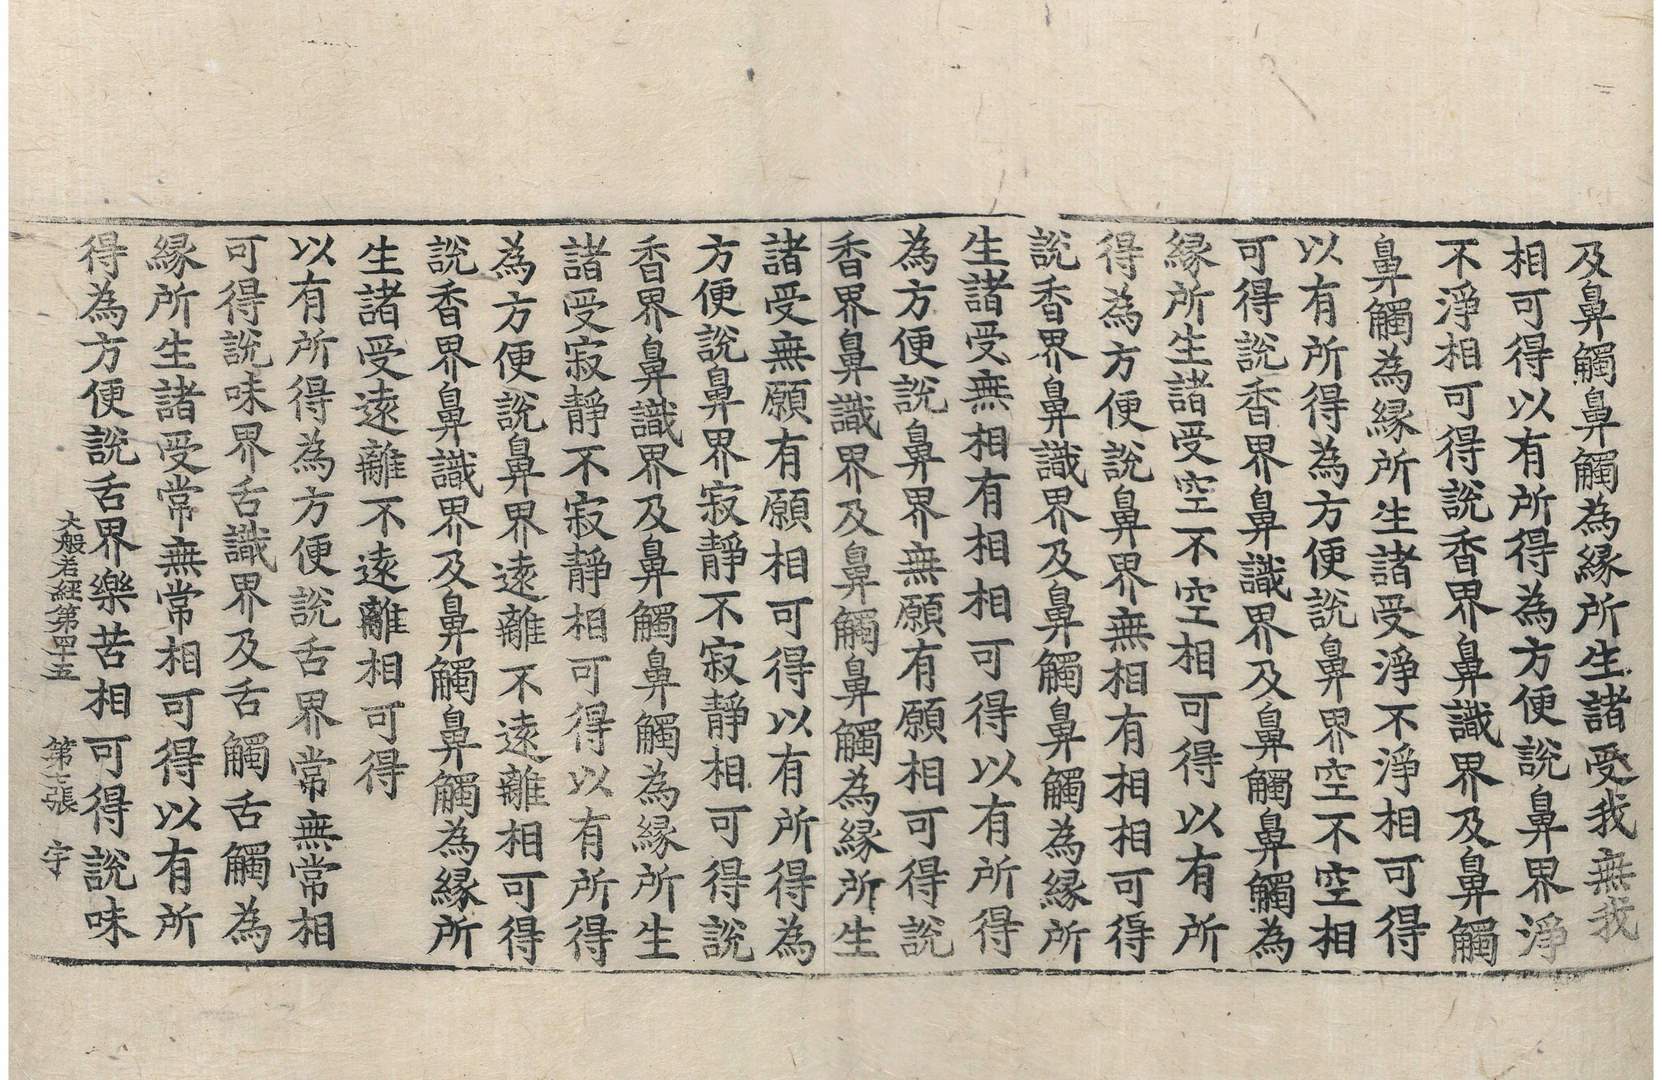 及鼻觸鼻觸為縁所生諸受我無我
相可得以有所得為方便說鼻界淨
不淨相可得說香界鼻識界及鼻觸
鼻觸為縁所生諸受淨不淨相可得
以有所得為方便說鼻界空不空相
可得說香界鼻識界及鼻觸鼻觸為
縁所生諸受空不空相可得以有所
得為方便說鼻界無相有相相可得
說香界鼻識界及鼻觸鼻觸為縁所
生諸受無相有相相可得以有所得
為方便說鼻界無願有願相可得說
香界鼻識界及鼻觸鼻觸為縁所生
諸受無願有願相可得以有所得為
方便說鼻界寂靜不寂靜相可得說
香界鼻識界及鼻觸鼻觸為縁所生
諸受寂靜不寂靜相可得以有所得
為方便說鼻界遠離不遠離相可得
說香界鼻識界及鼻觸鼻觸為縁所
生諸受遠離不遠離相可得
以有所得為方便說舌界常無常相
可得說味界舌識界及舌觸舌觸為
縁所生諸受常無常相可得以有所
得為方便說舌界樂苦相可得說味
大般若經第四十五 第 張 宇